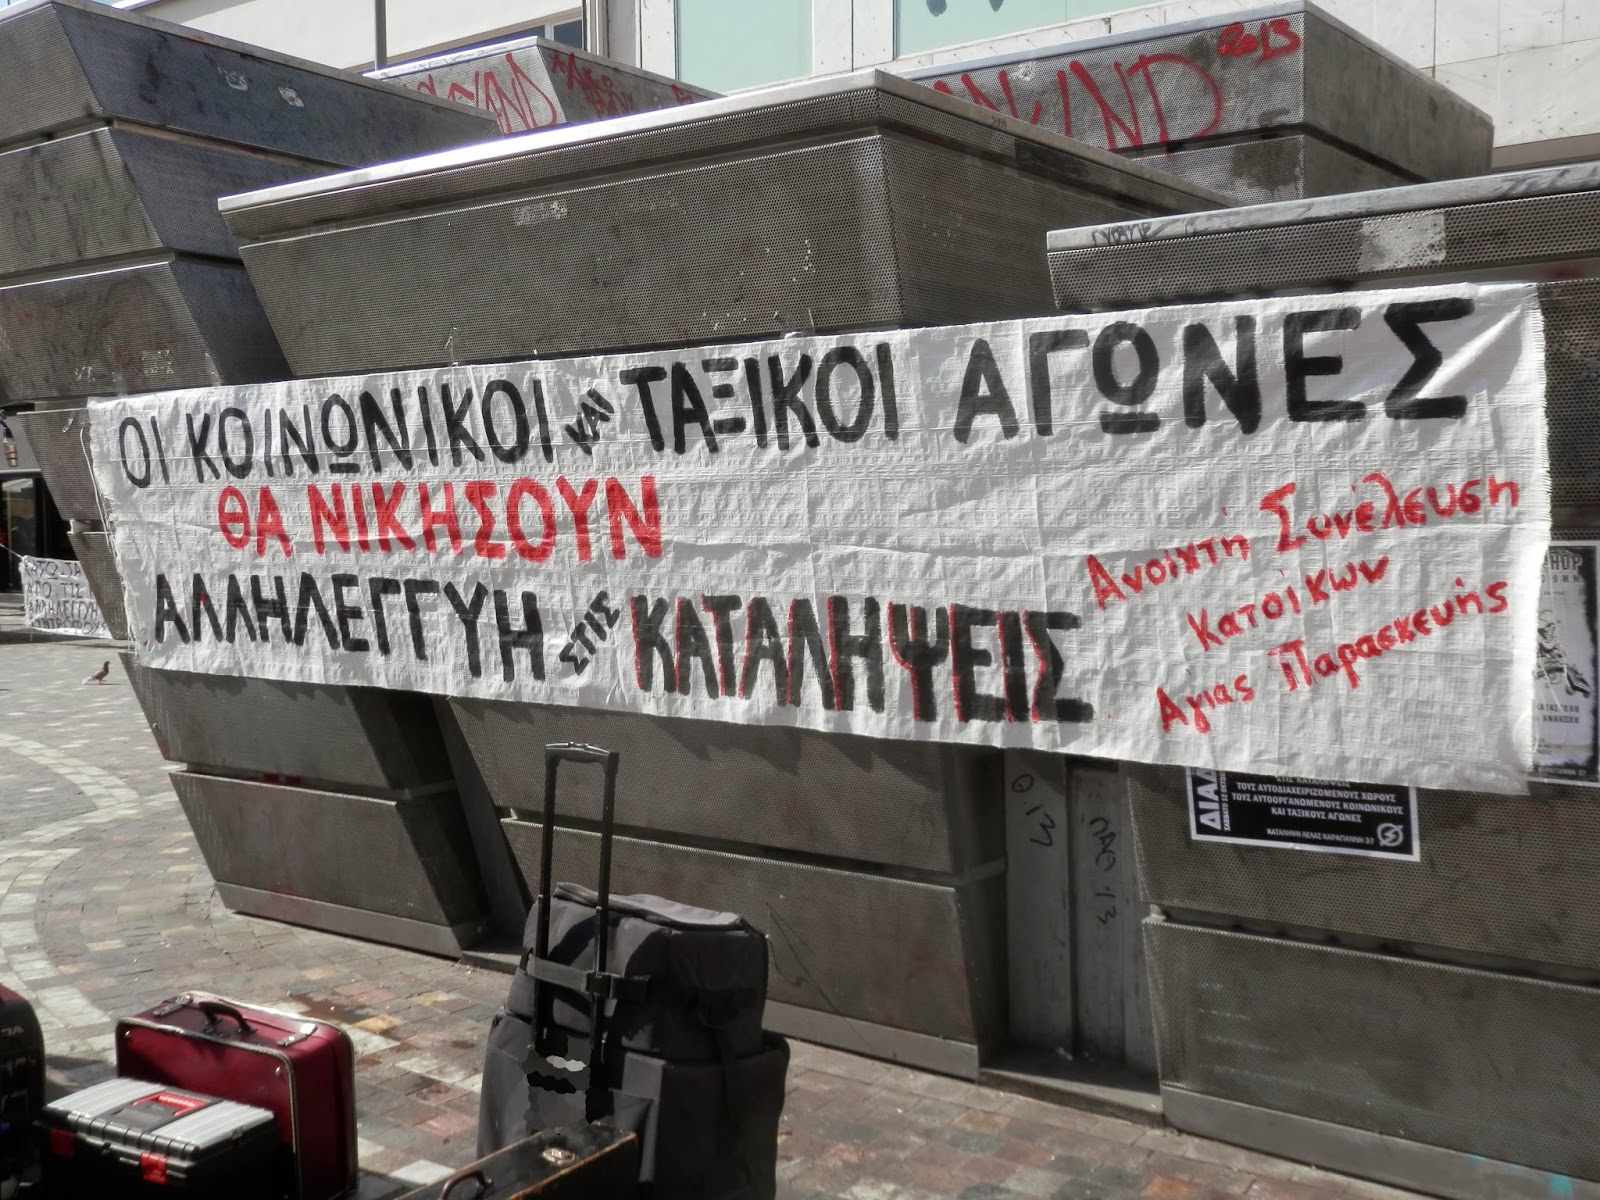 ΟΙ ΚΟΙΝΩΝΙΚΟΙ ΚΑΙ ΤΑΞΙΚΟΙ ΑΓΩΝΕΣ
ΘΑ ΝΙΚΗΣΟΥΝ
ΑΛΛΗΛΕΓΓΥΗ ΣΤΙΣ ΚΑΤΑΛΗΨΕΙΣ
Ανοιχτή Συνέλευση
Κατοίκων
Αγίας Παρασκευής
2013
ΤΟΥΣ ΑΥΤΟΔΙΑΧΕΙΡΙΖΟΜΕΝΟΥΣ ΧΩΡΟΥΣ
ΤΟΥΣ ΑΥΤΟΟΡΓΑΝΩΜΕΝΟΥΣ ΚΟΙΝΩΝΙΚΟΥΣ
ΚΑΙ ΤΑΞΙΚΟΥΣ ΑΓΩΝΕΣ
ΚΑΤΑΛΗΨΗ ΛΕΛΑΣ ΚΑΡΑΓΙΑΝΝΗ 37
ΑΠΟ ΤΙΣ
ΑΛΛΗΛΕΓΓΥΗ